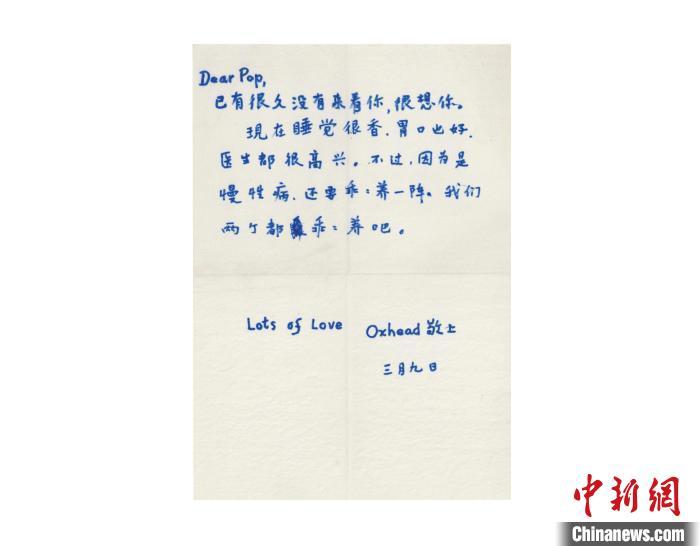 Dear Pop,
已有很久没有来看你,很想你。
現在睡觉很香,胃口也好.
医生都很高兴。不过,因为是
慢性病,还要乖:养一阵。我们
两个都乖:养吧。
Lots of Love
Oxhead 敬上
三月九日
中新網
Chinanews.com